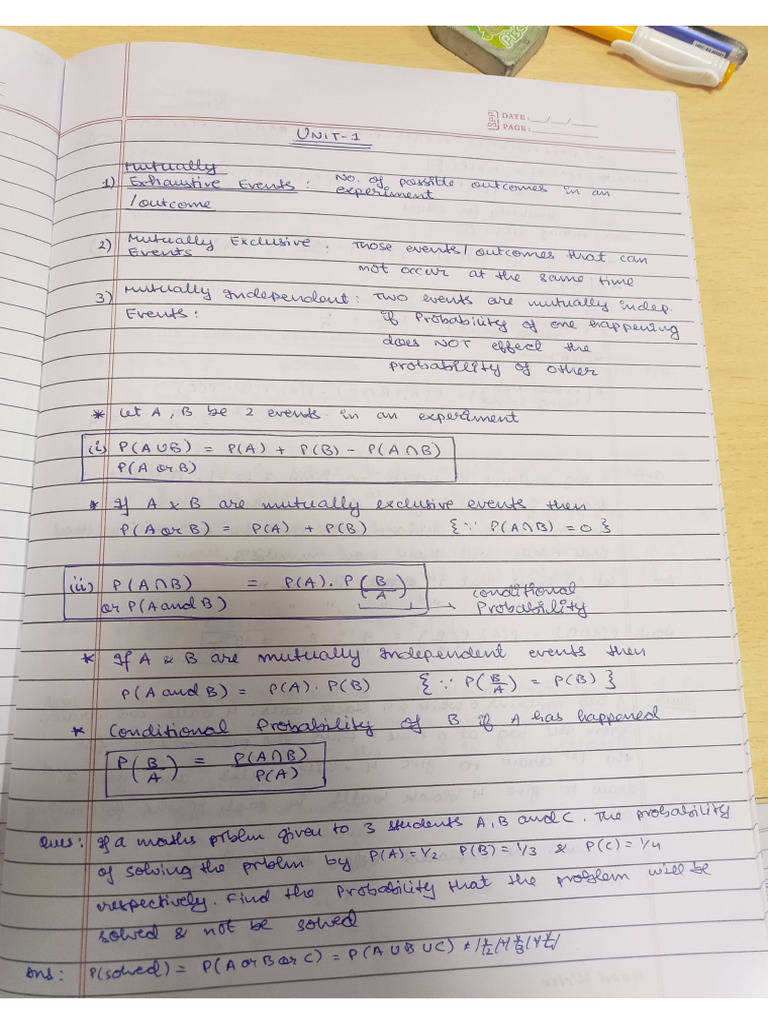 DATE: __/__/__
PAGE: ______
UNIT-1
Mutually
1) Exhaustive Events : No. of possible outcomes in an
/outcome experiment
2) Mutually Exclusive : Those events/outcomes that can
Events not occur at the same time
3) Mutually Independent : Two events are mutually indep.
Events : if Probability of one happening
does NOT effect the
probability of other
* Let A, B be 2 events in an experiment
(i) P(A∪B) = P(A) + P(B) - P(A∩B)
P(A or B)
* If A & B are mutually exclusive events then
P(A or B) = P(A) + P(B) {∵ P(A∩B) = 0}
(ii) P(A∩B) = P(A). P(B/A) conditional
or P(A and B) Probability
* If A & B are mutually Independent events then
P(A and B) = P(A). P(B) {∵ P(B/A) = P(B)}
* Conditional Probability of B if A has happened
P(B/A) = P(A∩B)/P(A)
Ques: If a maths prblm given to 3 students A, B and C. The probability
of solving the prblm by P(A)=1/2 P(B)=1/3 & P(C)=1/4
respectively. Find the Probability that the problem will be
solved & not be solved
Ans: P(solved) = P(A or B or C) = P(A∪B∪C)